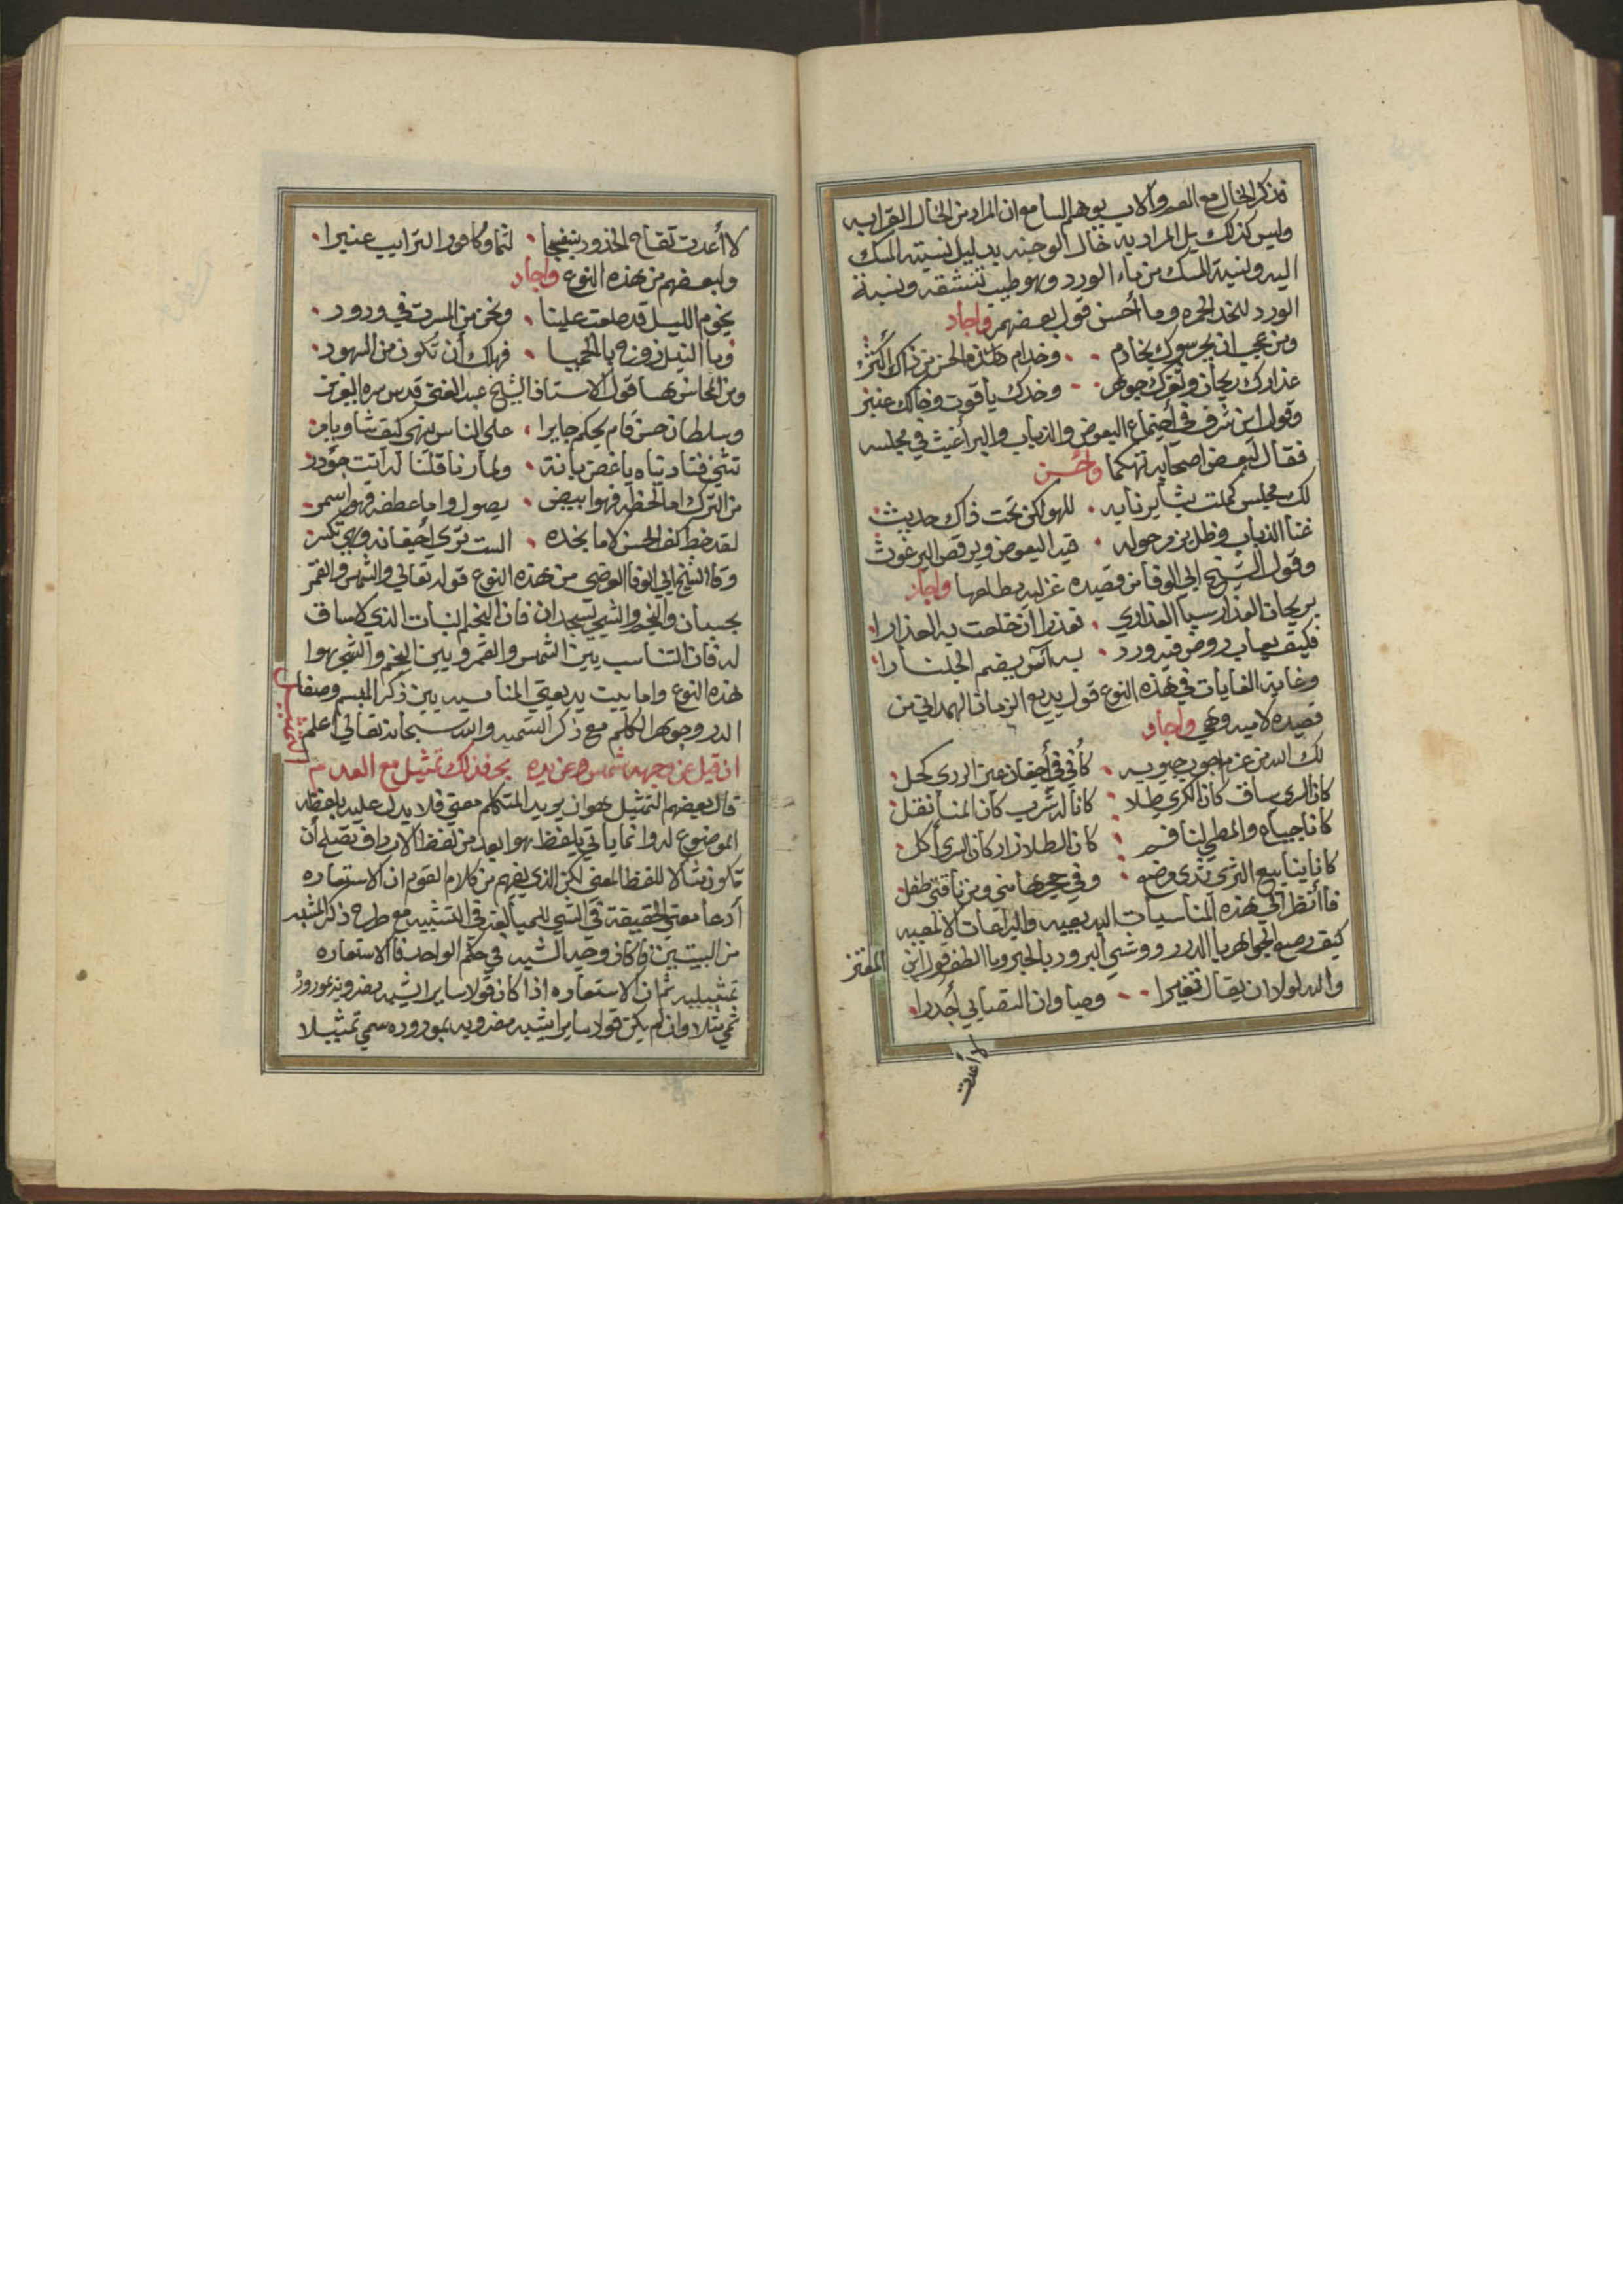 فذكر الخال مع العم والاب يوهم السامع ان المراد من الخال القرابه
وليس كذلك بل المراد به خال الوجنه بدليل نسبته المسك
اليه ونسبة المسك من ماء الورد وهو طيب تنشقه ونسبة
الورد للخد الحمره وما أحسن قول بعضهم واجاد
ومن عجب ان يحرسوك بخادم وخدام هذا الحسن من ذاك أكثر
عذارك ريحان وثغرك جوهر وخدك ياقوت وخالك عنبر
وقول ابن شرف في أجتماع البعوض والذباب والبراغيث في مجلسه
فقال لبعض اصحابه تهكما واحسن
لك مجلس كملت بشاير نابه للهو لكن تحت ذاك حديث
غنا الذباب وظل يزمر حوله فيه البعوض ويرقص البرغوث
وقول الشيخ ابي الوفا من قصيده غزليه مطلعها واجاد
بريحان العذار سبا العذاري تعذر ان خلعت به العذارا
فكيف يعاب روض فيه ورد به آس يضم الجلنارا
وغاية الغايات في هذه النوع قول بديع الزمان الهمداني من
قصيده لاميه وهي واجاد
لك الله من عزم اجوب جيوبه كأني في أجفان عين الردي كحل
كان السري ساق كان الكري طلا كانا له شرب كان المنا نقل
كانا جياع والمطي لنا فم كان الطلا زاد كان السري أكل
كانا ينابيع الثري ثدي مرضع وفي حجرها مني ومن ناقتي طفل
فاأنظر الي هذه المناسبات البديعيه والبراعات الالمعيه
كيف رصع الجواهر باالدرر ووشي البرود بالحبر وما الطف قول ابن المعتز
والله لولا ان يقال تغيرا وصبا وان التصابي أجدرا
لا أعدت
لا أعدت تفاح الخدود بنفسجا لثما وكافور الترايب عنبرا
ولبعضهم من هذه النوع واجاد
نجوم الليل قد طلعت علينا ونحن من المسرت في ورود
وما النيل زوج بالحميا فهلك أن تكون من الشهود
ومن المحاسن بها قول الاستاذ الشيخ عبد الغني قدس سره العزيز
وسلطان حسن قام يحكم جايرا علي الناس ينهي كيف شاء ويامر
تثني فتاديناه ياغصن بانة ولما رنا قلنا له انت جؤدر
من الترك اما لحظه فهو ابيض يصول واما عطفه فهو اسمر
لقد خط كف الحسن لاما بخده الست تري أجفانه وهي تكسر
وقا الشيخ ابي الوفا العرضي من هذه النوع قوله تعالي والشمس والقمر
بحسبان والنجم والشجر يسجدان فان النجم النبات الذي لا ساق
له فان التناسب بين الشمس والقمر وبين النجم والشجر هوا
هذه النوع واما بيت بديعتي المناسبه بين ذكر المبسم وصفاء
الدر وجوهر الكلم مع ذكر التسميه والله سبحانه تعالي أعلم
التمثيل
ان قيل عن وجهه شمس وعن يده بحر فذلك تمثيل مع العدم
قال بعضهم التمثيل هو ان يريد المتكلم معني فلا يدل عليه بلفظه
الموضوع له وانما ياتي بلفظ هو ابعد من لفظ الارداف يصلح أن
تكون مثالا للفظ المعني لكن الذي يفهم من كلام القوم ان الاستعاره
أدعا معني الحقيقة في الشي للمبالغه في التشبيه مع طرح ذكر المشبه
من البيتين فاكان وجه الشبه في حكم الواحد فاالاستعاره
تمثيليه ثم ان الاستعاره اذا كان قولا سايرا يشبه مضربه بمورده
سمي مثلا وان لم يكن قولا سايرا يشبه مضربه بمورده سمي تمثيلا